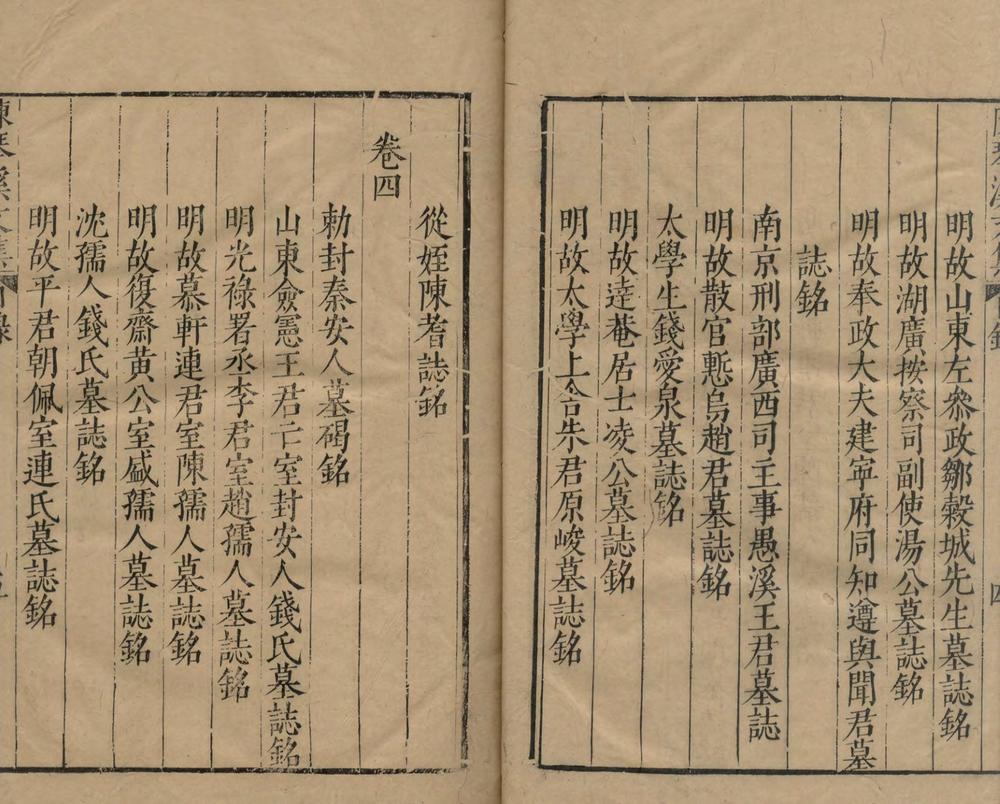 明故山東左叅政鄒糓城先生墓誌銘
明故湖廣按察司副使湯公墓誌銘
明故奉政大夫建寧府同知遵與聞君墓
誌銘
南京刑部廣西司主事愚溪王君墓誌
明故散官慙烏趙君墓誌銘
太學生錢愛泉墓誌銘
明故逹菴居士凌公墓誌銘
明故太學上舍朱君原峻墓誌銘
從姪陳耆誌銘
卷四
勅封秦安人墓碣銘
山東僉憲王君亡室封安人錢氏墓誌銘
明光祿署丞李君室趙孺人墓誌銘
明故慕軒連君室陳孺人墓誌銘
明故復齋黃公室盛孺人墓誌銘
沈孺人錢氏墓誌銘
明故平君朝佩室連氏墓誌銘